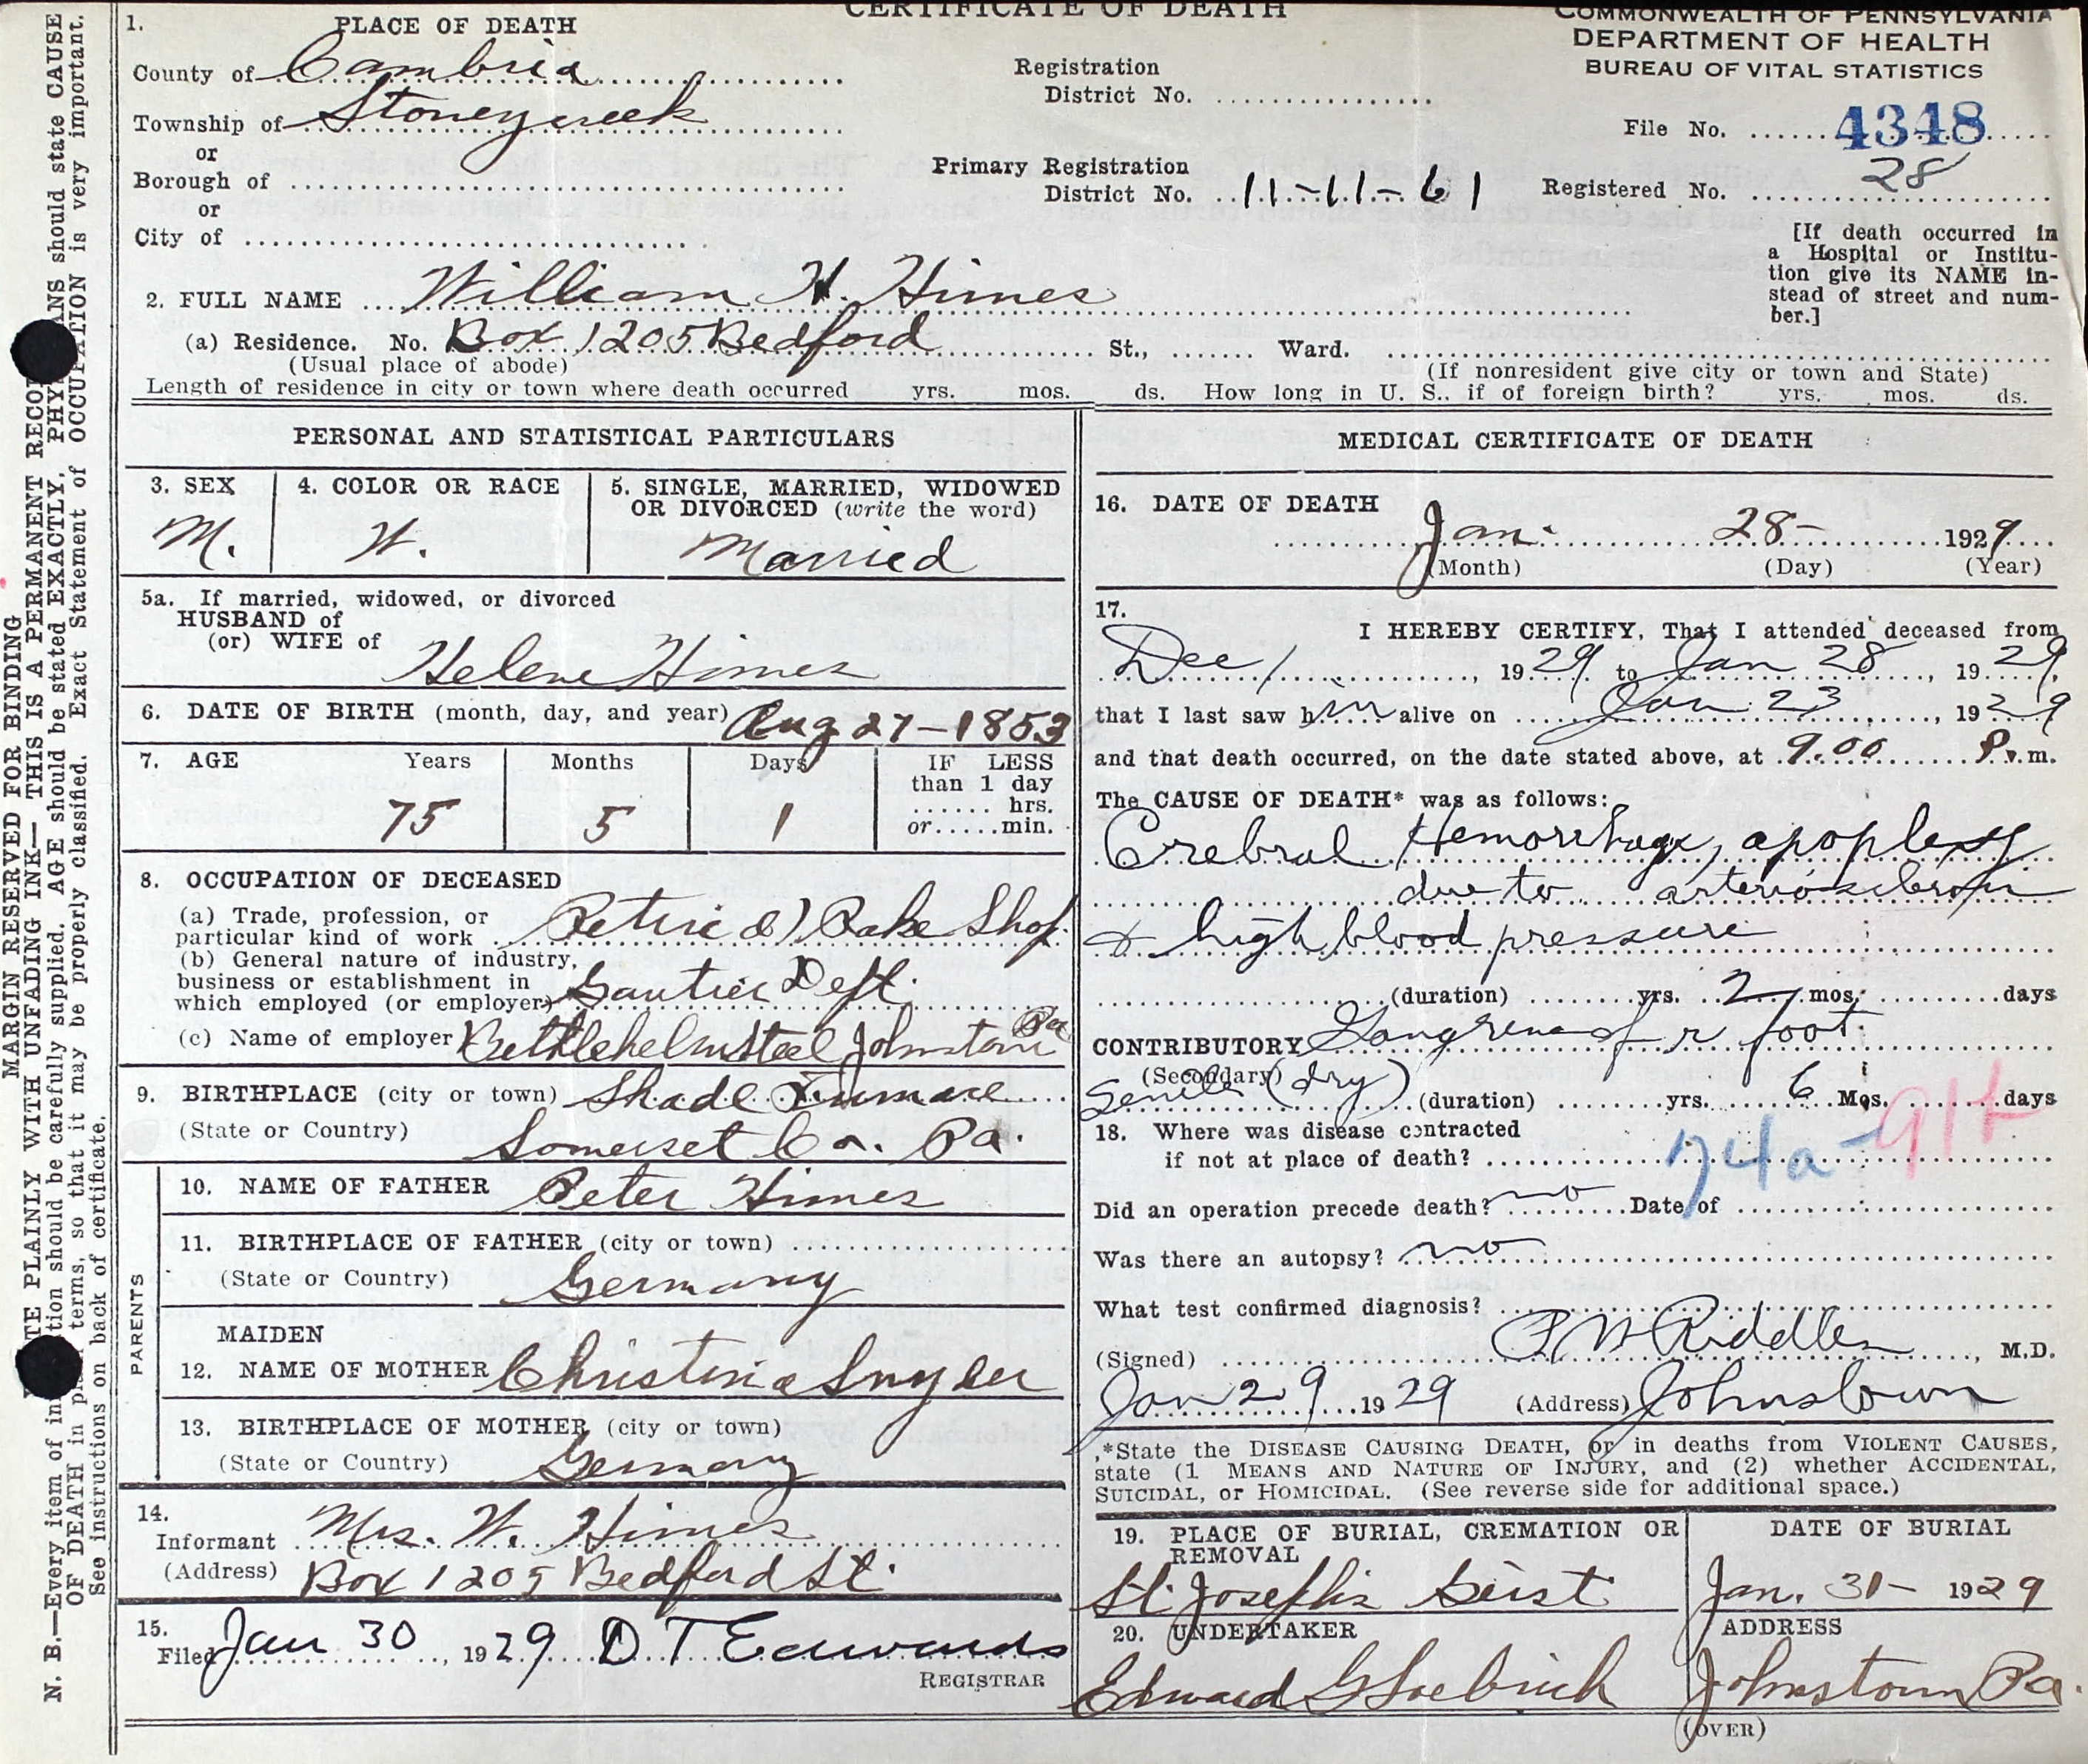 CERTIFICATE OF DEATH
COMMONWEALTH OF PENNSYLVANIA
DEPARTMENT OF HEALTH
BUREAU OF VITAL STATISTICS
1. PLACE OF DEATH
County of Cambria
Township of Stoneycreek
or
Borough of
or
City of
Registration
District No.
Primary Registration
District No. 11-11-61
File No. 4348
Registered No. 28
[If death occurred in
a Hospital or Institu-
tion give its NAME in-
stead of street and num-
ber.]
2. FULL NAME William H. Himes
(a) Residence. No. Box 1205 Bedford St., Ward.
(Usual place of abode)
(If nonresident give city or town and State)
Length of residence in city or town where death occurred yrs. mos. ds. How long in U. S., if of foreign birth? yrs. mos. ds.
PERSONAL AND STATISTICAL PARTICULARS
3. SEX
M.
4. COLOR OR RACE
W.
5. SINGLE, MARRIED, WIDOWED
OR DIVORCED (write the word)
Married
5a. If married, widowed, or divorced
HUSBAND of
(or) WIFE of
Helene Himes
6. DATE OF BIRTH (month, day, and year) Aug 27-1853
7. AGE Years Months Days
75 5 1
IF LESS
than 1 day
hrs.
or min.
8. OCCUPATION OF DECEASED
(a) Trade, profession, or
particular kind of work Rake Shop
(b) General nature of industry,
business or establishment in
which employed (or employer) Gautier Dept.
(c) Name of employer Bethlehem Steel Johnstown Pa
9. BIRTHPLACE (city or town) Shade Furnace
(State or Country) Somerset Co. Pa.
PARENTS
10. NAME OF FATHER Peter Himes
11. BIRTHPLACE OF FATHER (city or town)
(State or Country) Germany
MAIDEN
12. NAME OF MOTHER Christina Snyder
13. BIRTHPLACE OF MOTHER (city or town)
(State or Country) Germany
14.
Informant Mrs. W. Himes
(Address) Box 1205 Bedford St.
15.
Filed Jan 30, 1929 D T Edwards
REGISTRAR
MEDICAL CERTIFICATE OF DEATH
16. DATE OF DEATH
Jan. 28- 1929
(Month) (Day) (Year)
17.
I HEREBY CERTIFY, That I attended deceased from
Dec 1, 1929 to Jan 28, 1929,
that I last saw him alive on Jan 23, 1929
and that death occurred, on the date stated above, at 9.00 P.m.
The CAUSE OF DEATH* was as follows:
Cerebral Hemorrhage, apoplexy
due to arteriosclerosis
& high blood pressure
(duration) yrs. 2 mos. days
CONTRIBUTORY Gangrene of r foot
(Secondary)
Senile (dry) (duration) yrs. 6 Mos. days
74a-91b
18. Where was disease contracted
if not at place of death?
Did an operation precede death? no Date of
Was there an autopsy? no
What test confirmed diagnosis?
(Signed) Riddle, M.D.
Jan 29 1929 (Address) Johnstown
*State the DISEASE CAUSING DEATH, or in deaths from VIOLENT CAUSES,
state (1 MEANS AND NATURE OF INJURY, and (2) whether ACCIDENTAL,
SUICIDAL, or HOMICIDAL. (See reverse side for additional space.)
19. PLACE OF BURIAL, CREMATION OR
REMOVAL
St. Josephs Geist
DATE OF BURIAL
Jan. 31- 1929
20. UNDERTAKER
Edward G
ADDRESS
Johnstown Pa.
(OVER)
MARGIN RESERVED FOR BINDING
PLAINLY WITH UNFADING INK— THIS IS A PERMANENT
N. B.—Every item of should be carefully supplied. AGE should be stated EXACTLY. should state CAUSE
OF DEATH in terms, so that it may be properly classified. Exact Statement of OCCUPATION is very important.
See instructions on back of certificate.